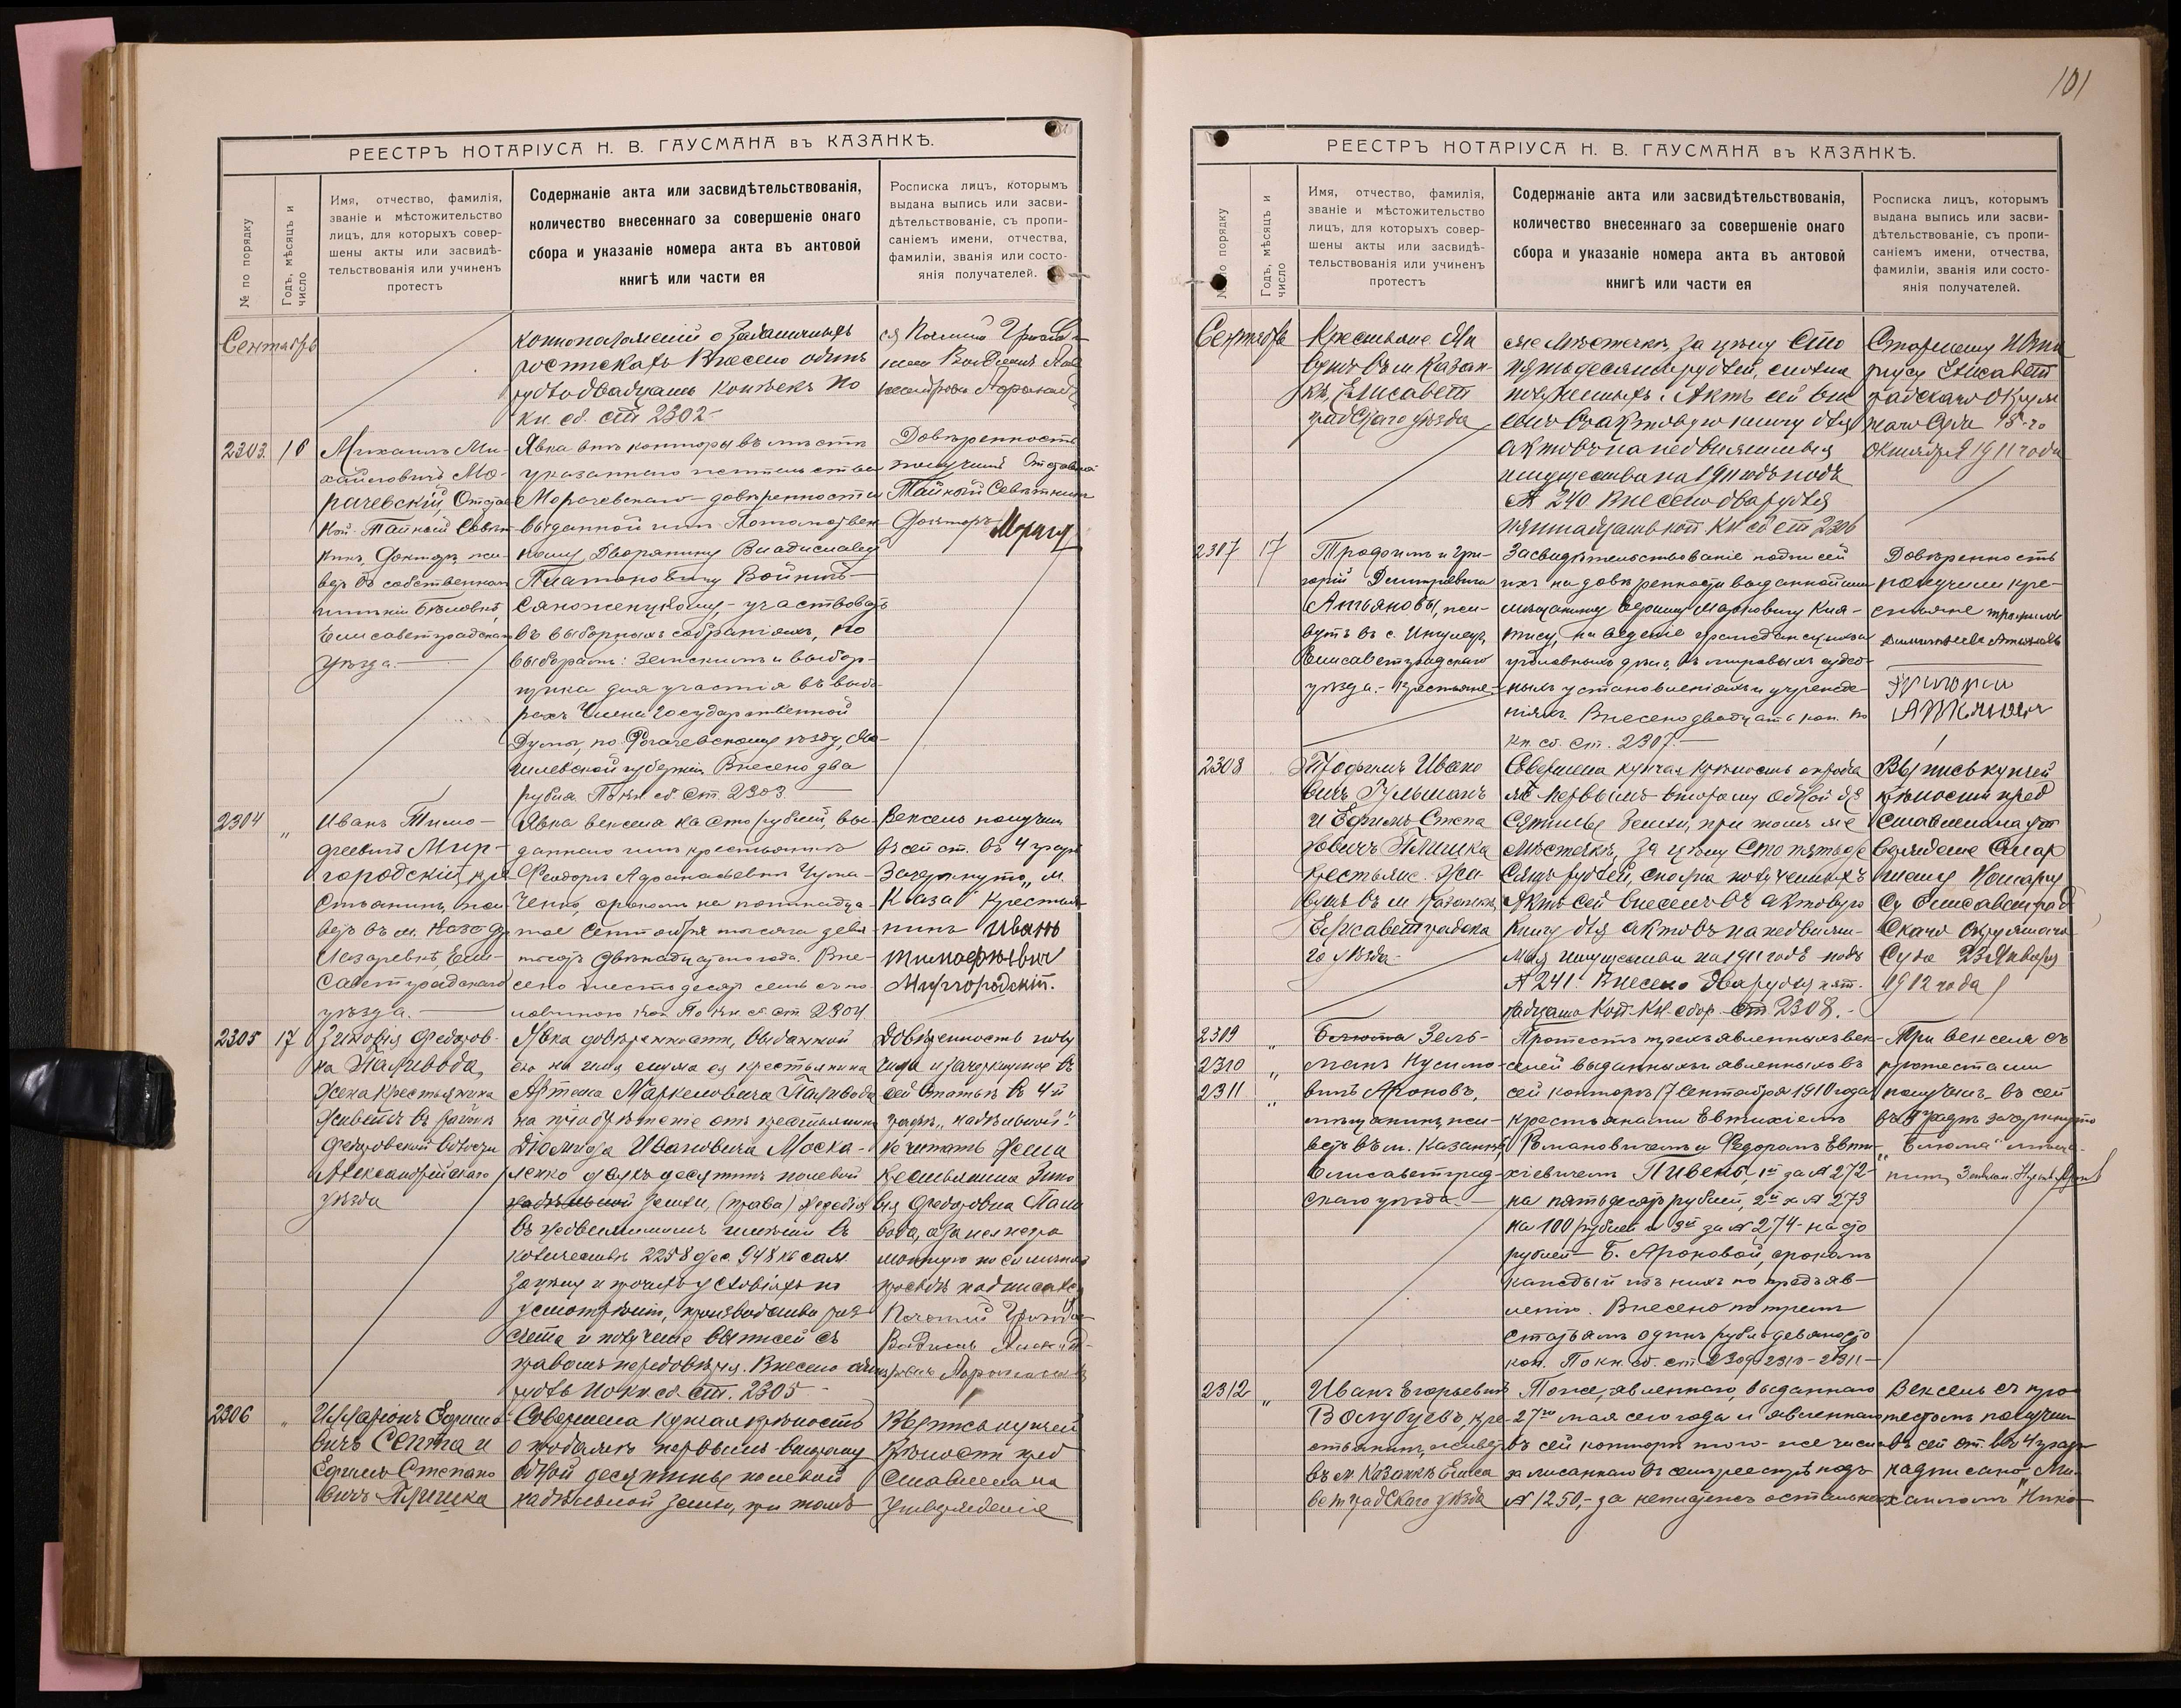 101
РЕЕСТРЪ НОТАРІУСА Н. В. ГАУСМАНА въ КАЗАНКѢ.
№ по порядку
Годъ, мѣсяцъ и число
Имя, отчество, фамилія,
званіе и мѣстожительство
лицъ, для которыхъ совер-
шены акты или засвидѣ-
тельствованія или учиненъ
протестъ
Содержаніе акта или засвидѣтельствованія,
количество внесеннаго за совершеніе онаго
сбора и указаніе номера акта въ актовой
книгѣ или части ея
Росписка лицъ, которымъ
выдана выпись или засви-
дѣтельствованіе, съ пропи-
саніемъ имени, отчества,
фамиліи, званія или состо-
янія получателей.
Сентябрь
росписках Внесено одинъ
рубль двадцать копѣекъ По
кн. сб. ст 2302-
2303. 16
Михаилъ Ми-
хайловичъ Мо-
рачевскій, Отстав
ной Тайный Совѣт
никъ, Докторъ, жи-
ветъ въ собственномъ
имѣніи
Елисаветградскаго
уѣзда.
Явка внѣ конторы въ мѣстѣ
указаннаго жительства
Морачевскаго - довѣренности
выданной имъ Потомствен
ному Дворянину Владиславу
Платоновичу Войничъ-
Сяноженцкому, - участвовать
въ выборныхъ собраніяхъ, по
выборамъ: Земскимъ и выбор-
щика для участія въ выбо-
рахъ Члена Государственной
Думы, по Рогачевскому уѣзду, Мо-
гилевской губерніи. Внесено два
рубля. По кн. сб. Ст. 2303.
Довѣренность
получилъ Отставной
Тайный Совѣтникъ
Докторъ
2304 "
Иванъ Тимо-
феевичъ Мир-
городскій, кре
стьянинъ, жи-
ветъ въ м.
Лазаревкѣ, Ели-
саветградскаго
уѣзда.
Явка векселя на сто рублей, вы-
даннаго имъ крестьяниномъ
Феодоръ Афанасьевичъ Чума-
ченко, срокомъ на пятнадца-
тое Сентября тысяча девя-
тьсотъ двѣнадцатаго года. Вне-
сено шестьдесятъ семь съ по-
ловиною коп По кн. сб. ст 2304.
Вексель получилъ
въ сей ст. въ 4 графѣ
Зачеркнуто „м.
Крестья
нинъ Иванъ
Тимофѣевич
Миргородскій.
2305 17
Зиновія Федоров-
на Паливода,
Жена Крестьянина
Живетъ въ районѣ
Федоровской Волости
Александрійскаго
уѣзда
Явка довѣренности, выданной
ею на имя мужа ея крестьянина
Артема Маркеловича Паливода
на пріобрѣтеніе отъ крестьянина
Діомида Ивановича Моска-
ленко двухъ десятинъ полевой
надѣльной земли, (права)
въ недвижимомъ имѣніи въ
количествѣ 2258 дес. 948 кв саж
За цѣну и прочихъ условіяхъ по
усмотрѣнію, производства раз-
счета и полученіе выписей съ
правомъ передовѣрія. Внесено одинъ
рубль По кн. сб. ст. 2305
Довѣренность полу
чила и зачеркнутое въ
сей статьѣ въ 4й
графѣ „надѣльной"
не читать Жена
Крестьянина Зино
вія Федоровна Пали
вода, а за нея негра
мотную по ея личной
просьбѣ подписался
2306 "
Илларіонъ Ефимо
вичъ Септа и
Ефимъ Степано
вичъ Плишка
Совершена купчая крѣпость
о продажѣ первымъ второму
одной десятины полевой
надѣльной земли, при томъ
Выпись купчей
крѣпости пред
ставлена на
утвержденіе
РЕЕСТРЪ НОТАРІУСА Н. В. ГАУСМАНА въ КАЗАНКѢ.
№ по порядку
Годъ, мѣсяцъ и число
Имя, отчество, фамилія,
званіе и мѣстожительство
лицъ, для которыхъ совер-
шены акты или засвидѣ-
тельствованія или учиненъ
протестъ
Содержаніе акта или засвидѣтельствованія,
количество внесеннаго за совершеніе онаго
сбора и указаніе номера акта въ актовой
книгѣ или части ея
Росписка лицъ, которымъ
выдана выпись или засви-
дѣтельствованіе, съ пропи-
саніемъ имени, отчества,
фамиліи, званія или состо-
янія получателей.
Сентябрь
Крестьяне. Жи
вутъ въ м. Казан-
кѣ, Елисавет
градскаго уѣзда
же мѣстечкѣ, за цѣну Сто
пятьдесятъ рублей, сполна
полученныхъ. Актъ сей вне
сенъ въ актовую книгу для
актовъ на недвижимыя
имущества на 1911 годъ подъ
№ 240 Внесено два рубля
пятнадцать коп Кн сб ст 2306
Старшему Нота
ріусу Елисавет
градскаго Окруж
наго Суда 15-го
Октября 1911 года
2307 17
Трофимъ и Гри-
горій Дмитріевичи
жи-
вутъ въ с. Ингулецъ,
Елисаветградскаго
уѣзда. - крестьяне
Засвидѣтельствованіе подписей
ихъ на довѣренности выданной ими
мѣщанину
на веденіе гражданскихъ и
уголовныхъ дѣлъ, въ мировыхъ судеб-
ныхъ установленіяхъ и учрежде-
ніяхъ. Внесено двадцать коп. По
Кн. сб. ст. 2307.
Довѣренность
получили кре-
стьяне
Григорій
2308 "
Трофимъ Ивано
вичъ Гульманъ
и Ефимъ Степа
новичъ Плишка
Крестьяне. Жи
вутъ въ м. Казанкѣ,
Елисаветградска
го уѣзда
Совершена купчая крѣпость о прода
жѣ первымъ второму одной де
сятины земли, при томъ же
мѣстечкѣ, за цѣну Сто пятьде
сятъ рублей, сполна полученныхъ
Актъ сей внесенъ въ актовую
Книгу для актовъ на недвижи-
мыя имущества на 1911 годъ подъ
№ 241. Внесено два рубля пят-
надцать Коп. Кн. сбор. ст 2308.
Выпись купчей
крѣпости пред
ставлена на ут
вержденіе Стар
шему Нотаріу
су Елисаветград
скаго Окружнаго
Суда 23 Января
1912 года
2309 "
2310 "
2311 "
Зель-
манъ Нусимо-
вичъ Ароновъ,
мѣщанинъ, жи-
ветъ въ м. Казанкѣ
Елисаветград-
скаго уѣзда.
Протестъ трехъ явленныхъ век-
селей выданныхъ и явленныхъ въ
сей конторѣ 17 Сентября 1910 года
крестьянами Евтихіемъ
Романовичемъ и Федоромъ Евти-
хіевичемъ Пивень, 1й за № 272-
на пятьдесятъ рублей, 2й за № 273
на 100 рублей и 3й за № 274 - на сто
рублей - Б. Ароновой, срокомъ
каждый изъ нихъ по предъяв-
ленію. Внесено по тремъ
статьямъ одинъ рубль девяносто
коп. По кн. сб. ст 2309-2310-2311-
Три векселя съ
протестами
получилъ, въ сей
въ 4 графѣ зачеркнуто
2312 "
Иванъ Егорьевичъ
Волубуевъ, кре-
стьянинъ, живетъ
въ м. Казанкѣ Елиса
ветградскаго уѣзда
Тоже, явленнаго, выданнаго
27го мая сего года и явленнаго
въ сей конторѣ того-же числа
записаннаго въ семъ реестрѣ подъ
№ 1250, - за неплатежъ остальныхъ
Вексель съ про
тестомъ получилъ
въ сей ст. въ 4 графѣ
надписано „Ми-
хаиломъ" Нико-